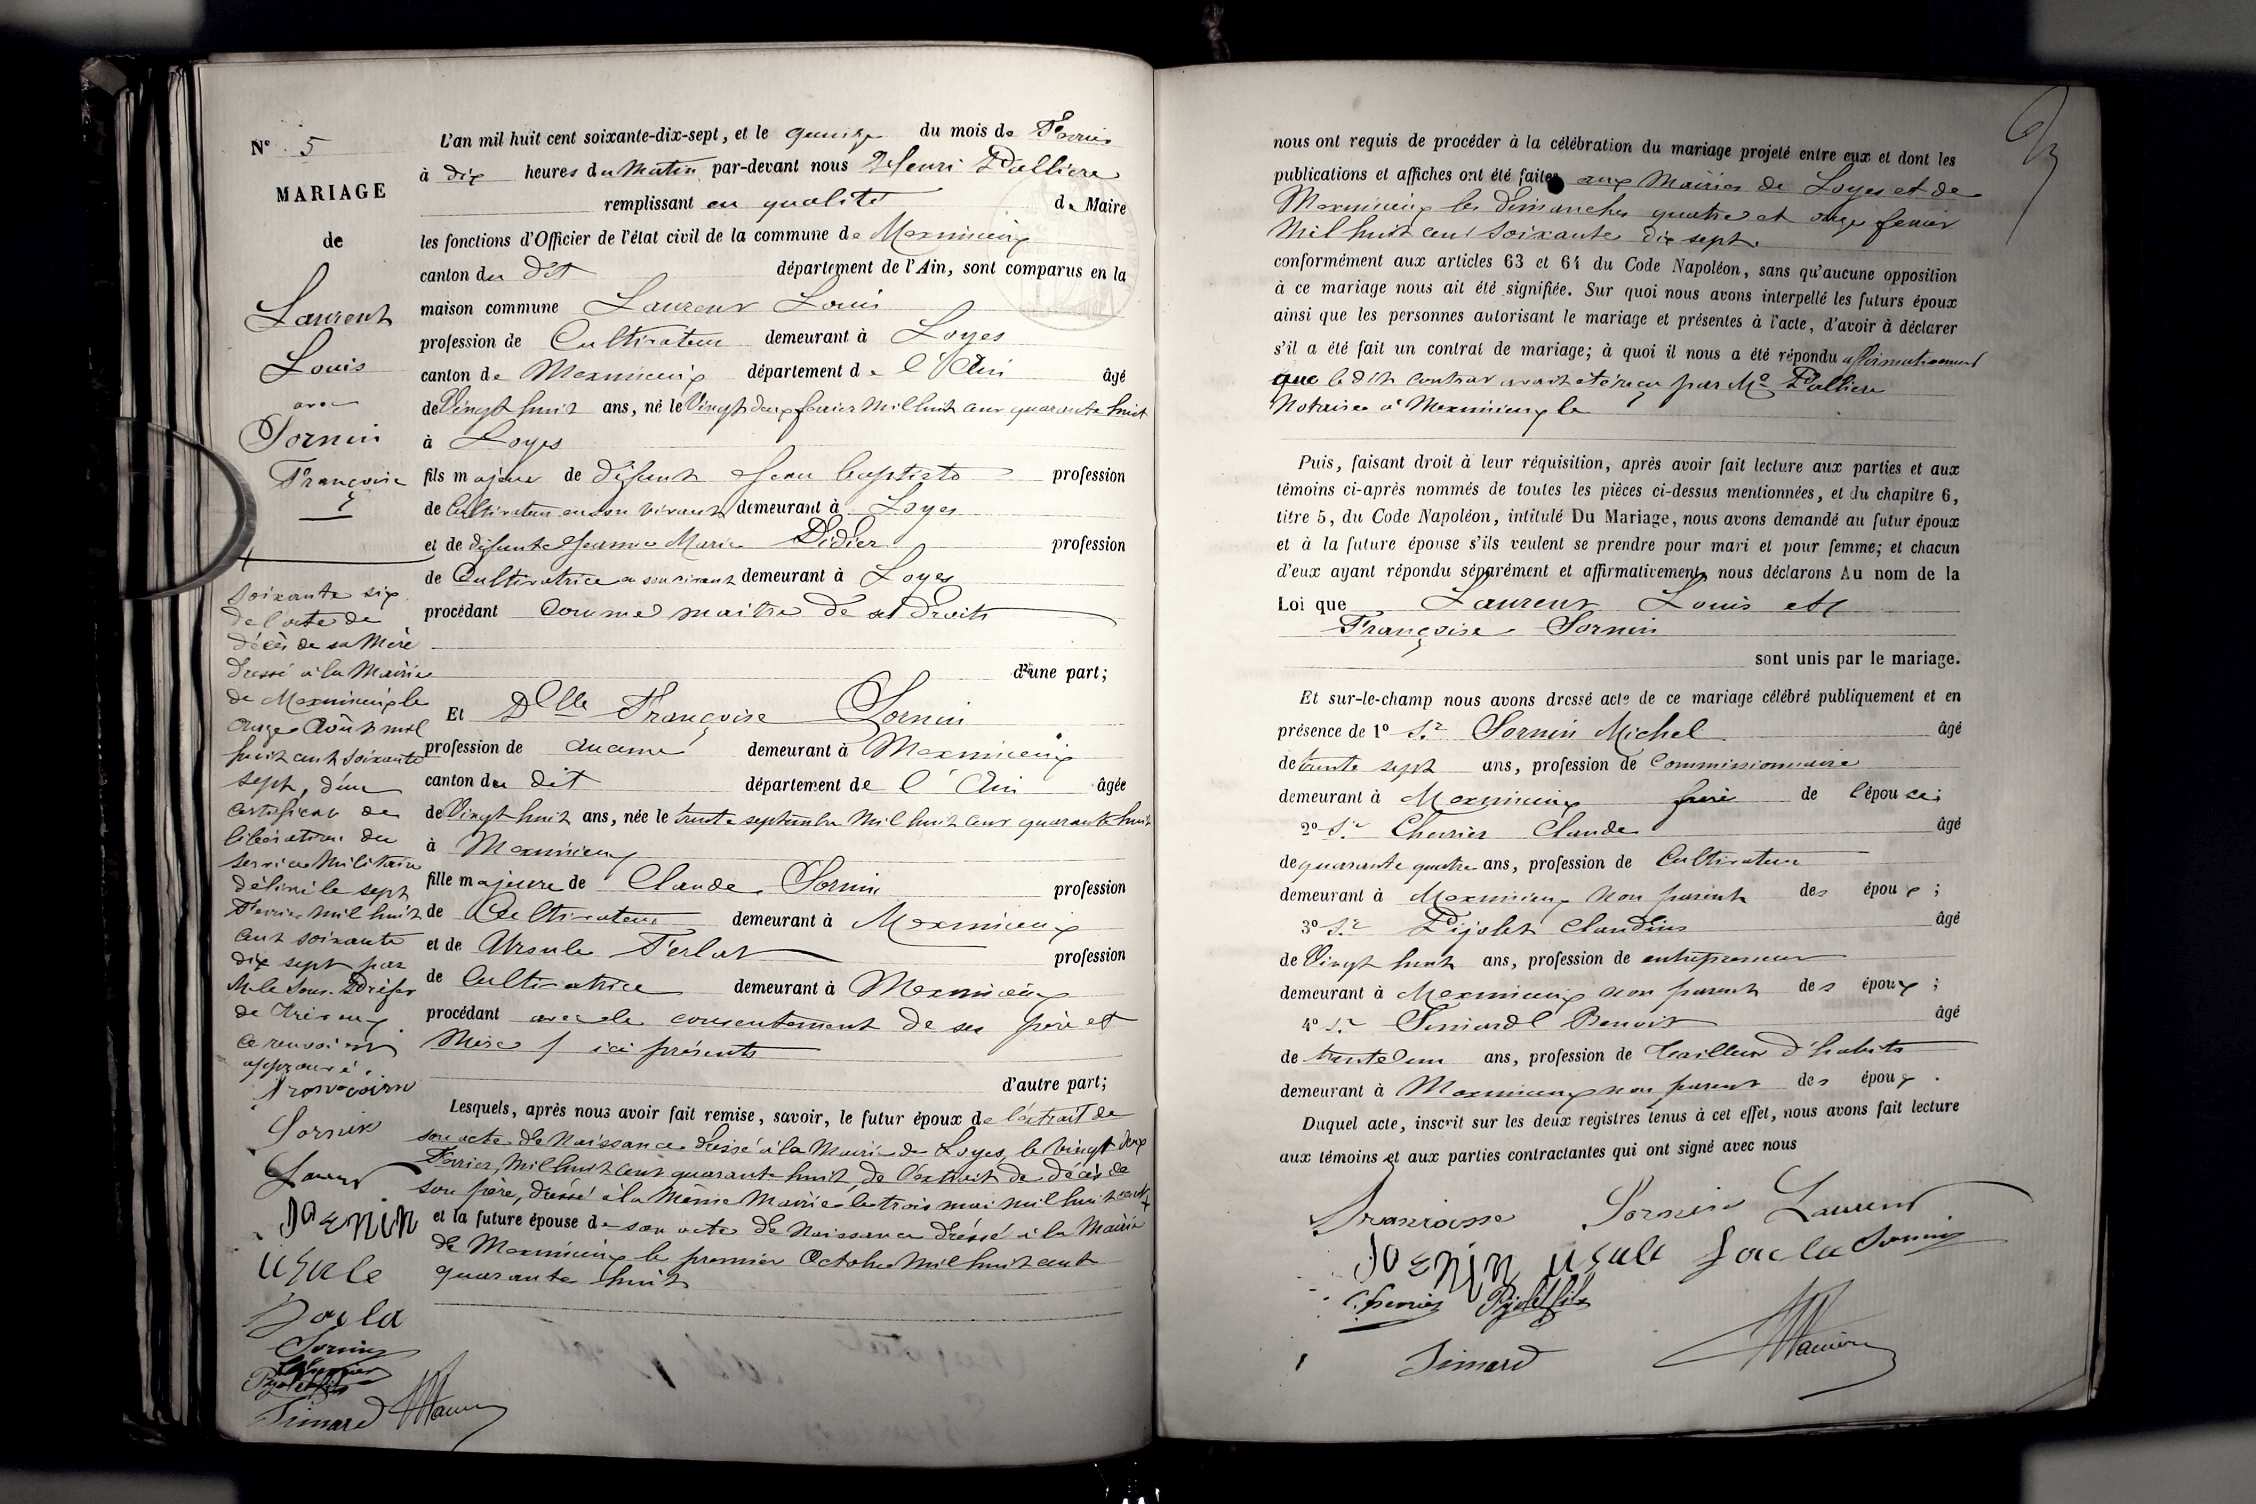 N° 5
MARIAGE
de
Laurent
Louis
avec
Sornin
Françoise
L'an mil huit cent soixante-dix-sept, et le quinze du mois de Février
à dix heures du Matin par-devant nous Henri Pallière
remplissant en qualité de Maire
les fonctions d'Officier de l'état civil de la commune de Meximieux
canton du dit département de l'Ain, sont comparus en la
maison commune Laurent Louis
profession de Cultivateur demeurant à Loyes
canton de Meximieux département de l'Ain âgé
de Vingt huit ans, né le Vingt deux février Mil huit cent quarante huit
à Loyes
fils majeur de défunt Jean Baptiste profession
de Cultivateur en son vivant demeurant à Loyes
et de défunte Jeanne Marie Didier profession
de Cultivatrice en son vivant demeurant à Loyes
procédant comme maitre de ses droits
d'une part;
Et Dlle Françoise Sornin
profession de aucune demeurant à Meximieux
canton du dit département de l'Ain âgée
de Vingt huit ans, née le trente septembre Mil huit cent quarante huit
à Meximieux
fille majeure de Claude Sornin profession
de Cultivateur demeurant à Meximieux
et de Ursule Ferlat profession
de Cultivatrice demeurant à Meximieux
procédant avec le consentement de ses père et
Mère ici présents
d'autre part;
Lesquels, après nous avoir fait remise, savoir, le futur époux de l'extrait de
son acte de Naissance dressé à la Mairie de Loyes, le vingt deux
Février Mil huit cent quarante huit, de l'extrait de décès de
son père, dressé à la Même Mairie le trois mai mil huit cent
et la future épouse de son acte de Naissance dressé à la Mairie
de Meximieux le premier Octobre Mil huit cent
quarante huit
soixante six
de l'acte de
décès de sa Mère
dressé à la Mairie
de Meximieux le
onze Août mil
huit cent soixante
sept, d'un
certificat de
libération du
service Militaire
délivré le sept
Février Mil huit
cent soixante
dix sept par
M. le Sous-Préfet
de Trévoux
ce renvoi est
approuvé.
Françoise
Sornin
Laurent
Sornin
Simard
nous ont requis de procéder à la célébration du mariage projeté entre eux et dont les
publications et affiches ont été faites aux Mairies de Loyes et de
Meximieux les dimanches quatre et onze février
Mil huit cent soixante dix sept.
conformément aux articles 63 et 64 du Code Napoléon, sans qu'aucune opposition
à ce mariage nous ait été signifiée. Sur quoi nous avons interpellé les futurs époux
ainsi que les personnes autorisant le mariage et présentes à l'acte, d'avoir à déclarer
s'il a été fait un contrat de mariage; à quoi il nous a été répondu affirmativement
que le dit contrat avait été reçu par Me Pallière
Notaire à Meximieux le
Puis, faisant droit à leur réquisition, après avoir fait lecture aux parties et aux
témoins ci-après nommés de toutes les pièces ci-dessus mentionnées, et du chapitre 6,
titre 5, du Code Napoléon, intitulé Du Mariage, nous avons demandé au futur époux
et à la future épouse s'ils veulent se prendre pour mari et pour femme; et chacun
d'eux ayant répondu séparément et affirmativement, nous déclarons Au nom de la
Loi que Laurent Louis et
Françoise Sornin
sont unis par le mariage.
Et sur-le-champ nous avons dressé acte de ce mariage célébré publiquement et en
présence de 1° Sr Sornin Michel âgé
de trente sept ans, profession de Commissionnaire
demeurant à Meximieux frère de l'épouse;
2° Sr Chevrier Claude âgé
de quarante quatre ans, profession de Cultivateur
demeurant à Meximieux non parent des époux;
3° Sr Pijolet Claudius âgé
de Vingt huit ans, profession de entrepreneur
demeurant à Meximieux non parent des époux;
4° Sr Simard Benoit âgé
de trente un ans, profession de tailleur d'habits
demeurant à Meximieux non parent des époux.
Duquel acte, inscrit sur les deux registres tenus à cet effet, nous avons fait lecture
aux témoins et aux parties contractantes qui ont signé avec nous
Françoise Sornin Laurent
Sornin
Simard